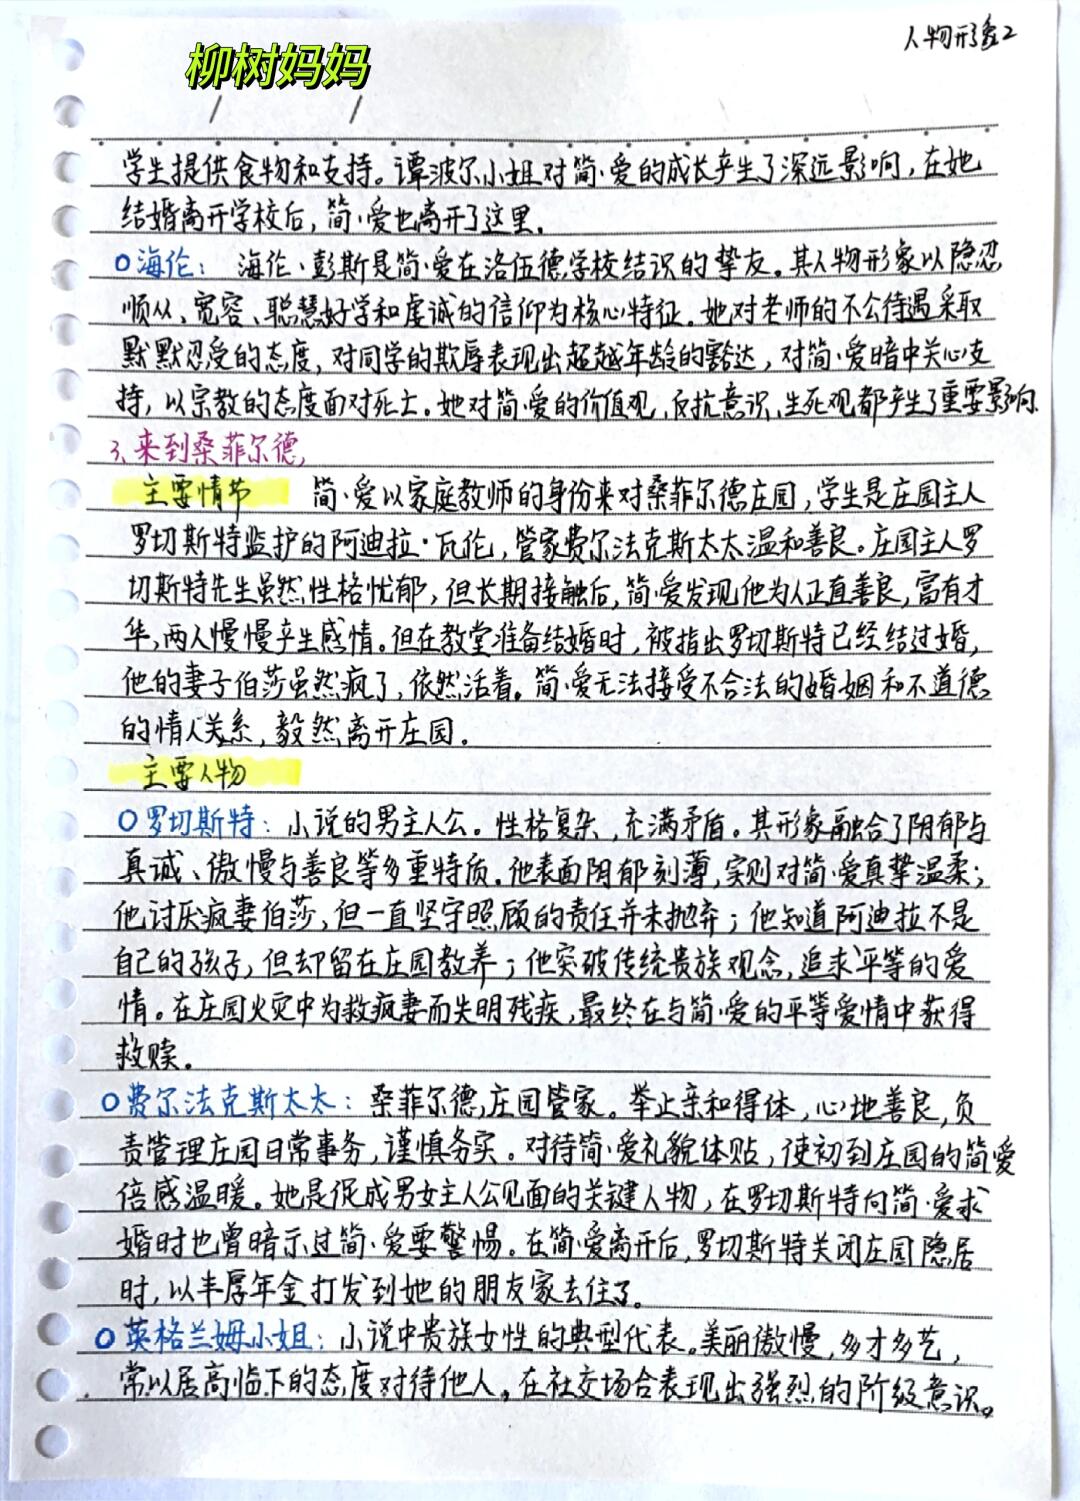 人物形象2
柳树妈妈
学生提供食物和支持。谭波尔小姐对简·爱的成长产生了深远影响,在她
结婚离开学校后,简·爱也离开了这里.
海伦: 海伦·彭斯是简·爱在洛伍德学校结识的挚友。其人物形象以隐忍
顺从、宽容、聪慧好学和虔诚的信仰为核心特征.她对老师的不公待遇采取
默默忍受的态度,对同学的欺辱表现出超越年龄的豁达,对简·爱暗中关心支
持,以宗教的态度面对死亡。她对简·爱的价值观、反抗意识、生死观都产生了重要影响.
3、来到桑菲尔德
主要情节 简·爱以家庭教师的身份来对桑菲尔德庄园,学生是庄园主人
罗切斯特监护的阿迪拉·瓦伦,管家费尔法克斯太太温和善良。庄园主人罗
切斯特先生虽然性格忧郁,但长期接触后,简·爱发现他为人正直善良,富有才
华,两人慢慢产生感情。但在教堂准备结婚时,被指出罗切斯特已经结过婚,
他的妻子伯莎虽然疯了,依然活着。简·爱无法接受不合法的婚姻和不道德
的情人关系,毅然离开庄园.
主要人物
罗切斯特: 小说的男主人公。性格复杂,充满矛盾。其形象融合了阴郁与
真诚、傲慢与善良等多重特质.他表面阴郁刻薄,实则对简·爱真挚温柔;
他讨厌疯妻伯莎,但一直坚守照顾的责任并未抛弃;他知道阿迪拉不是
自己的孩子,但却留在庄园教养;他突破传统贵族观念,追求平等的爱
情。在庄园火灾中为救疯妻而失明残疾,最终在与简·爱的平等爱情中获得
救赎。
费尔法克斯太太: 桑菲尔德庄园管家。举止亲和得体,心地善良,负
责管理庄园日常事务,谨慎务实。对待简·爱礼貌体贴,使初到庄园的简·爱
倍感温暖。她是促成男女主人公见面的关键人物,在罗切斯特向简·爱求
婚时也曾暗示过简·爱要警惕。在简·爱离开后,罗切斯特关闭庄园隐居
时,以丰厚年金打发到她的朋友家去住了。
英格兰姆小姐: 小说中贵族女性的典型代表。美丽傲慢,多才多艺,
常以居高临下的态度对待他人。在社交场合表现出强烈的阶级意识。